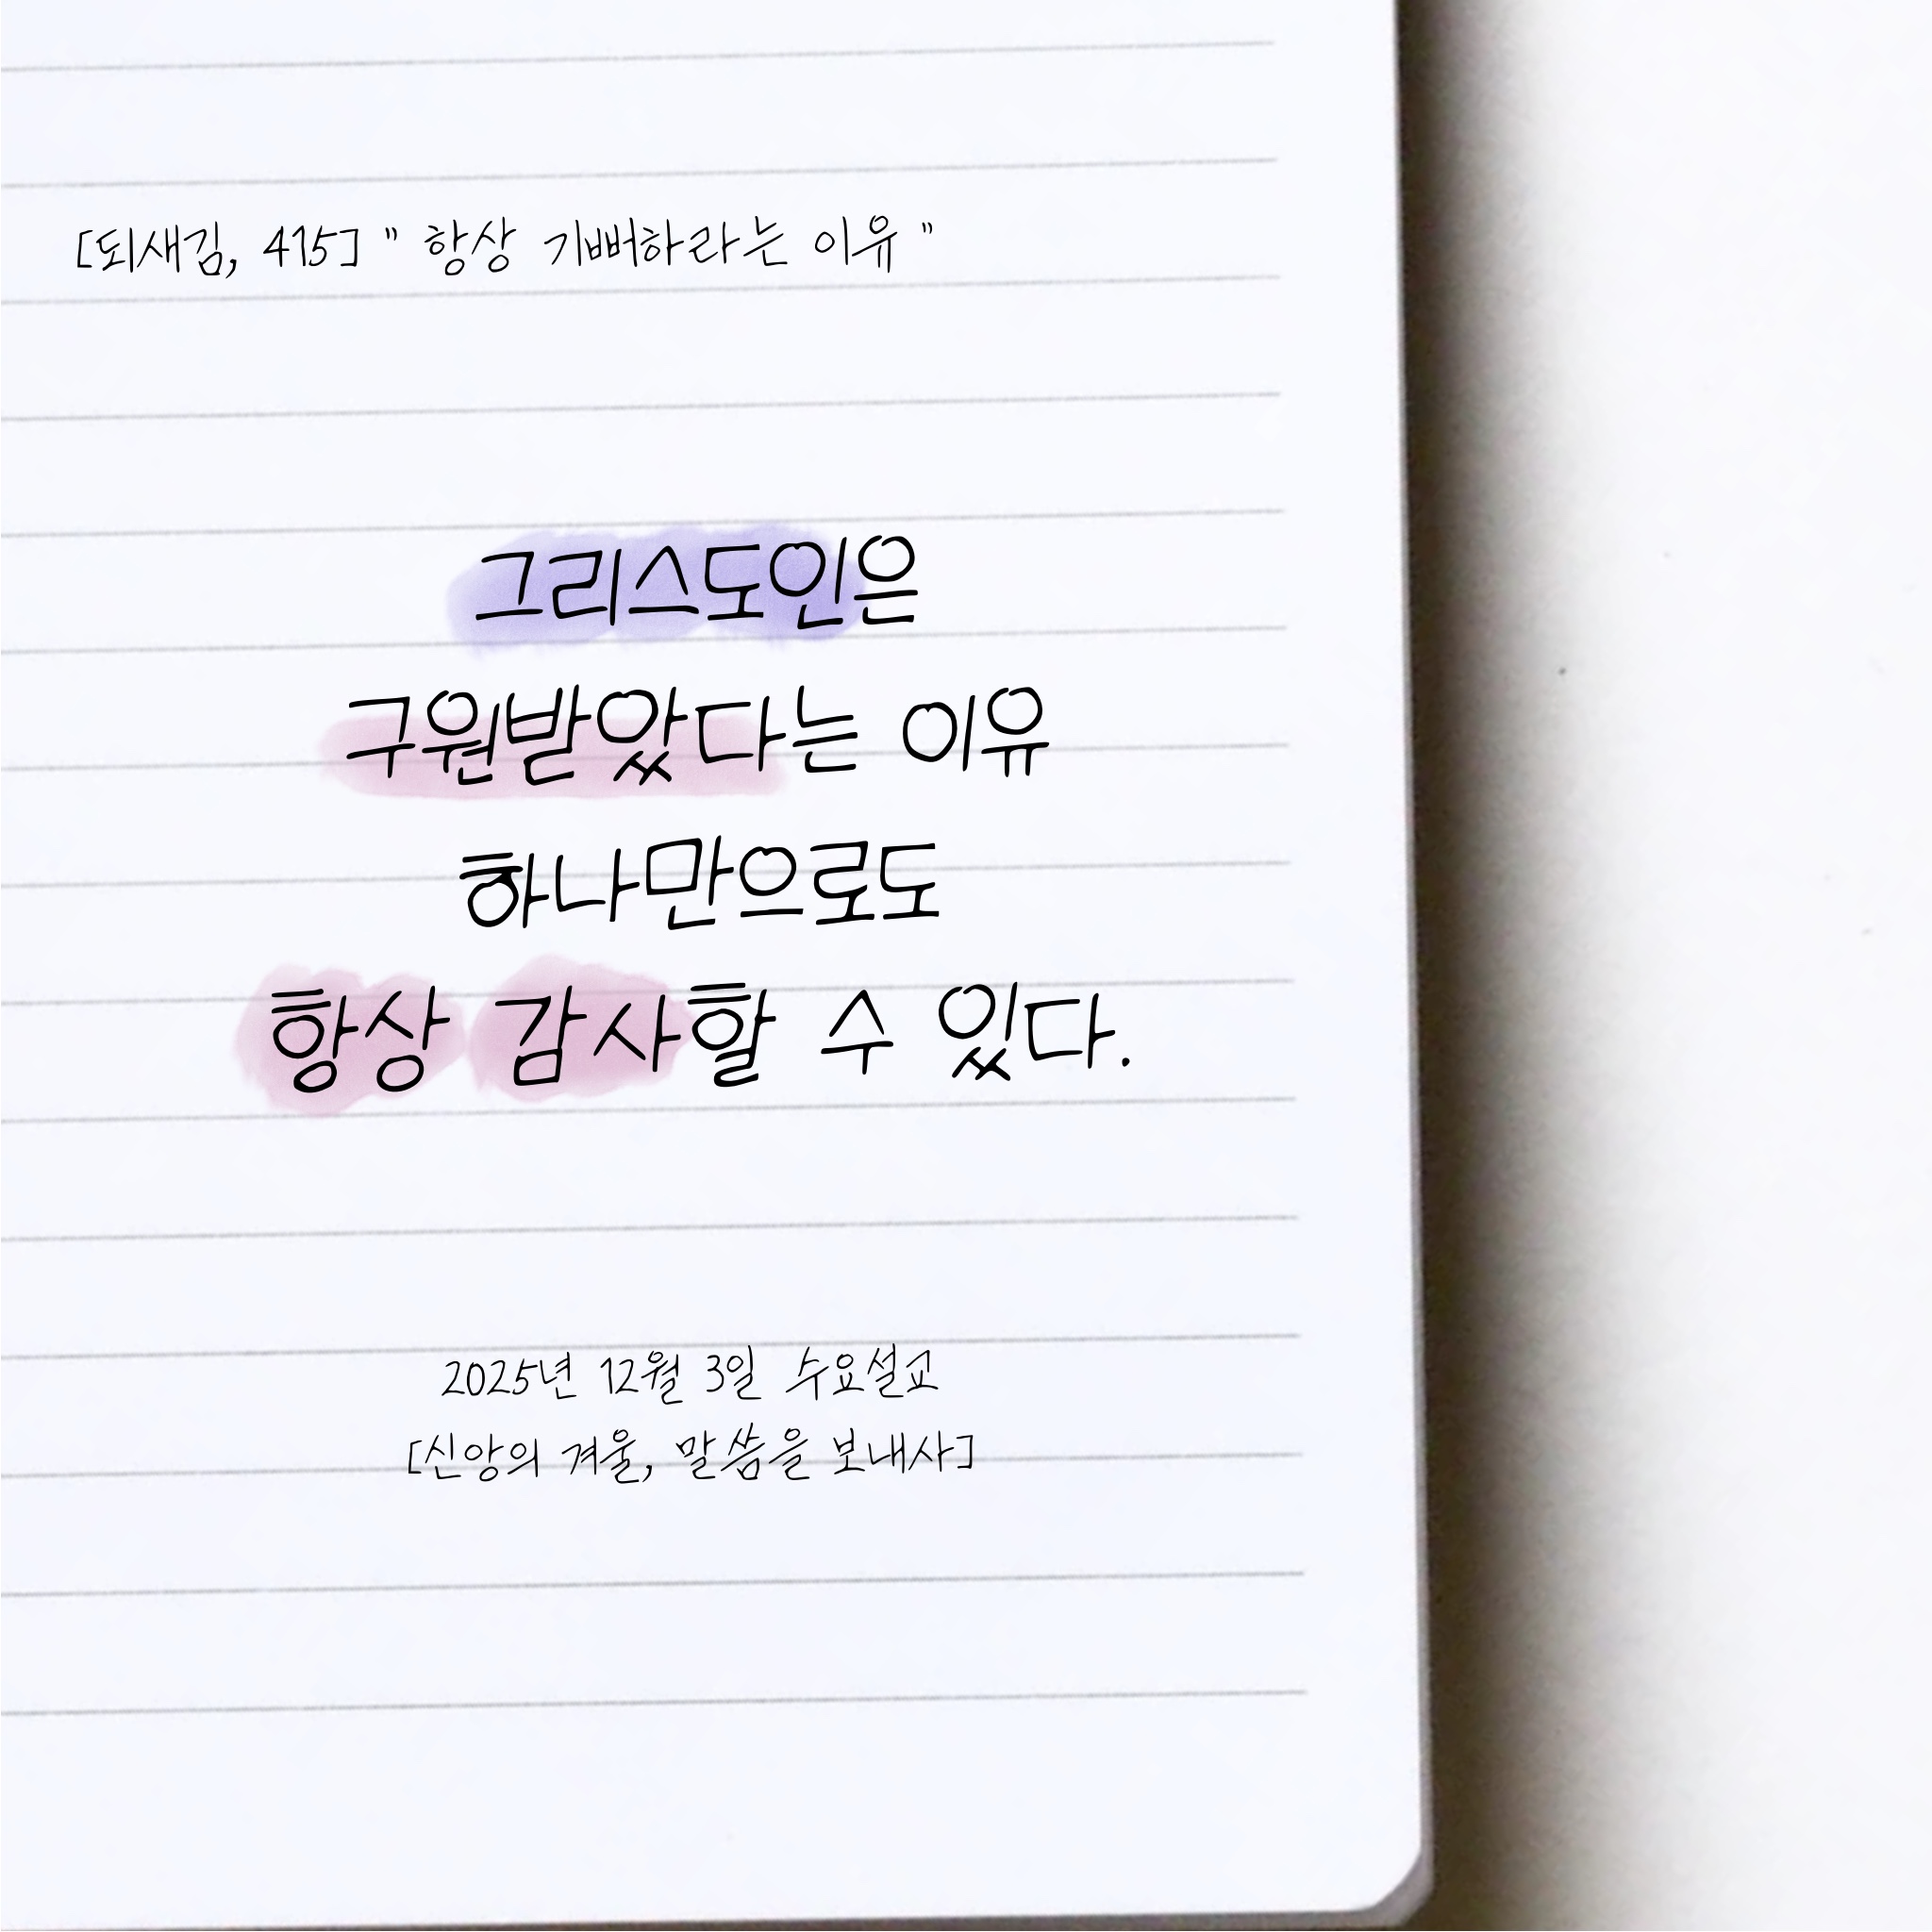 [되새김, 415] " 항상 기뻐하라는 이유 "
그리스도인은
구원받았다는 이유
하나만으로도
항상 감사할 수 있다.
2025년 12월 3일 수요설교
[신앙의 겨울, 말씀을 보내사]